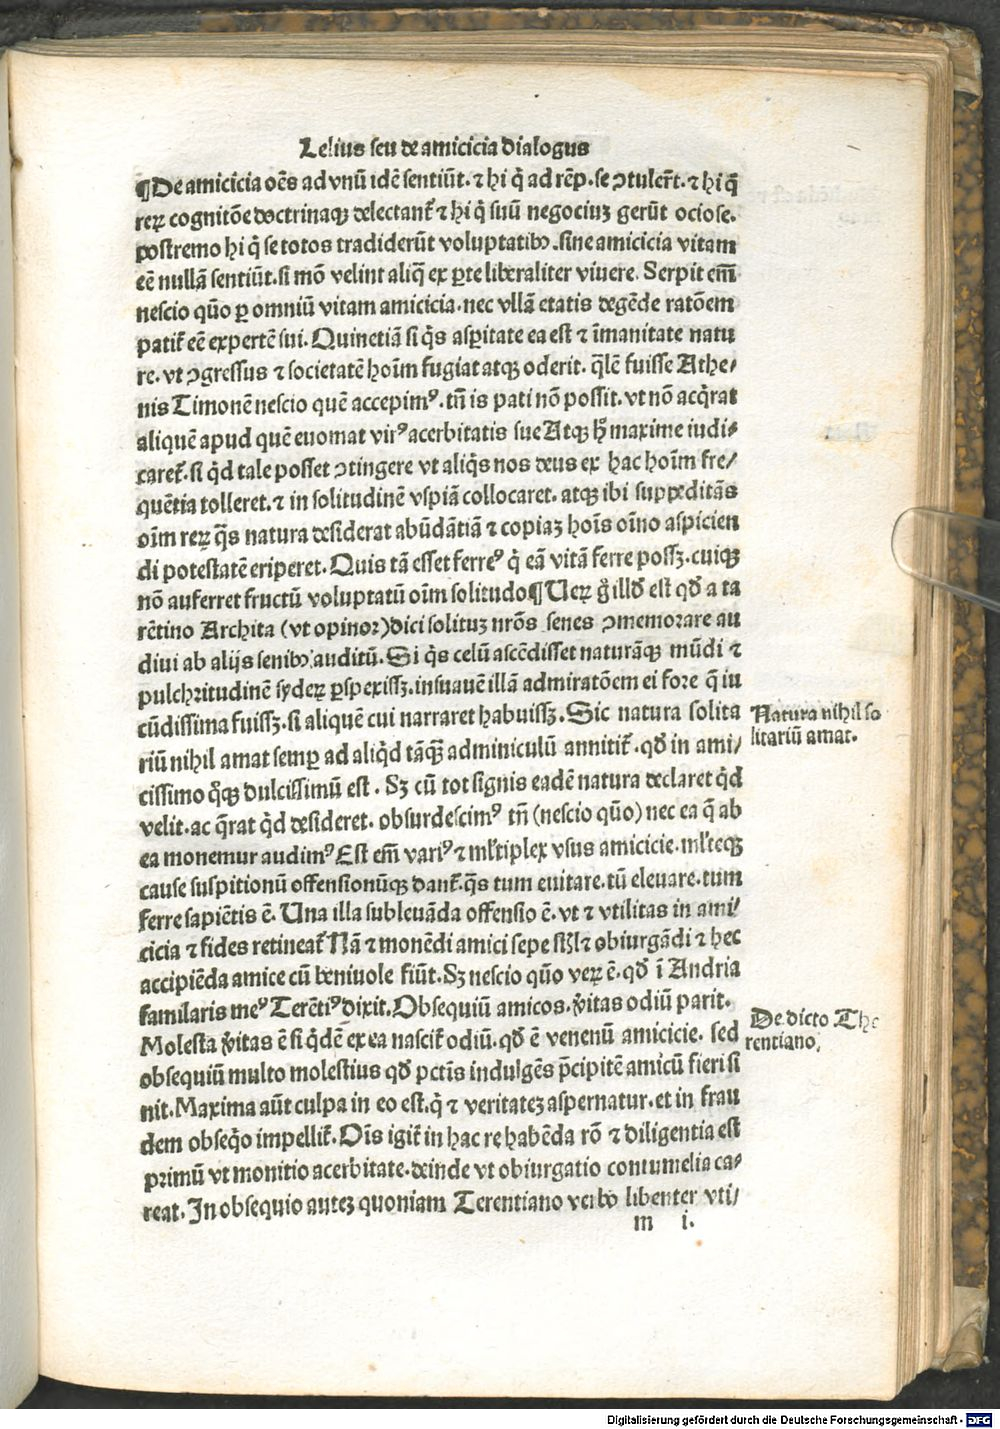 Lelius seu de amicicia dialogus
¶De amicicia oēs ad vnū idē sentiūt. ⁊ hi q̇ ad rēp. se ↄtuler̄t. ⁊ hi q̄
reꝝ cognitōe doctrinaqꝫ delectant᷑ ⁊ hi q̇ suū negociuꝫ gerūt ociose.
postremo hi q̇ se totos tradiderūt voluptatibꝰ. sine amicicia vitam
eē nullā sentiūt. si mō velint aliq̄ ex ꝑte liberaliter viuere. Serpit em̄
nescio quō ꝑ omniū vitam amicicia. nec vllā etatis degēde ratōem
patit᷑ eē expertē sui. Quinetiā si q̇s asp̲itate ea est ⁊ īmanitate natu
re. vt ↄgressus ⁊ societatē hoīm fugiat atqꝫ oderit. q̄lē fuisse Athe⸗
nis Timonē nescio quē accepimꝰ. tn̄ is pati nō possit. vt nō acq̇rat
aliquē apud quē euomat virꝰ acerbitatis sue Atqꝫ hͦ maxime iudi⸗
caret᷑. si q̇d tale posset ↄtingere vt aliq̇s nos deus ex hac hoīm fre⸗
quētia tolleret. ⁊ in solitudinē vspiā collocaret. atqꝫ ibi suppeditās
oīm reꝝ q̄s natura desiderat abūdātiā ⁊ copiaꝫ hoīs oīno aspicien
di potestatē eriperet. Quis tā esset ferreꝰ q̇ eā vitā ferre possꝫ. cuiqꝫ
nō auferret fructū voluptatū oīm solitudo ¶Ueꝝ g̊ illd̄ est qd̄ a ta
rētino Archita (vt opinor) dici solituꝫ nrōs senes ↄmemorare au
diui ab alijs senibꝰ auditū. Si q̇s celū ascēdisset naturāqꝫ mūdi ⁊
pulchritudinē sydeꝝ ꝑspexissꝫ. insuauē illā admiratōem ei fore q̄ iu
cūdissima fuissꝫ. si aliquē cui narraret habuissꝫ. Sic natura solita
riū nihil amat semꝑ ad aliq̇d tāqꝫ adminiculū annitit᷑. qd̄ in ami⸗
cissimo q̊qꝫ dulcissimū est. Sꝫ cū tot signis eadē natura declaret q̇d
velit. ac q̄rat q̇d desideret. obsurdescimꝰ tn̄ (nescio quō) nec ea q̄ ab
ea monemur audimꝰ Est em̄ variꝰ ⁊ ml̓tiplex vsus amicicie. ml̓teqꝫ
cause suspitionū offensionūqꝫ dant᷑. q̄s tum euitare. tū eleuare. tum
ferre sapiētis ē. Una illa subleuāda offensio ē. vt ⁊ vtilitas in ami⸗
cicia ⁊ fides retineat᷑ Nā ⁊ monēdi amici sepe st̄ ⁊ obiurgādi ⁊ hec
accipiēda amice cū beniuole fiūt. Sꝫ nescio quō veꝝ ē. qd̄ ī Andria
familaris meꝰ Terētiꝰ dixit. Obsequiū amicos. v̓itas odiū parit.
Molesta v̓itas ē si q̇dē ex ea nascit᷑ odiū. qd̄ ē venenū amicicie. sed
obsequiū multo molestius qd̄ pctīs indulgēs p̄cipitē amicū fieri si
nit. Maxima aūt culpa in eo est. q̇ ⁊ veritateꝫ aspernatur. et in frau
dem obseq̇o impellit᷑. Oīs igit᷑ in hac re habēda rō ⁊ diligentia est
primū vt monitio acerbitate. deinde vt obiurgatio contumelia ca⸗
reat. In obsequio auteꝫ quoniam Terentiano verbo libenter vti⸗
m i.
Natura nihil so
litariū amat.
De dicto The
rentiano.
Digitalisierung gefördert durch die Deutsche Forschungsgemeinschaft - DFG